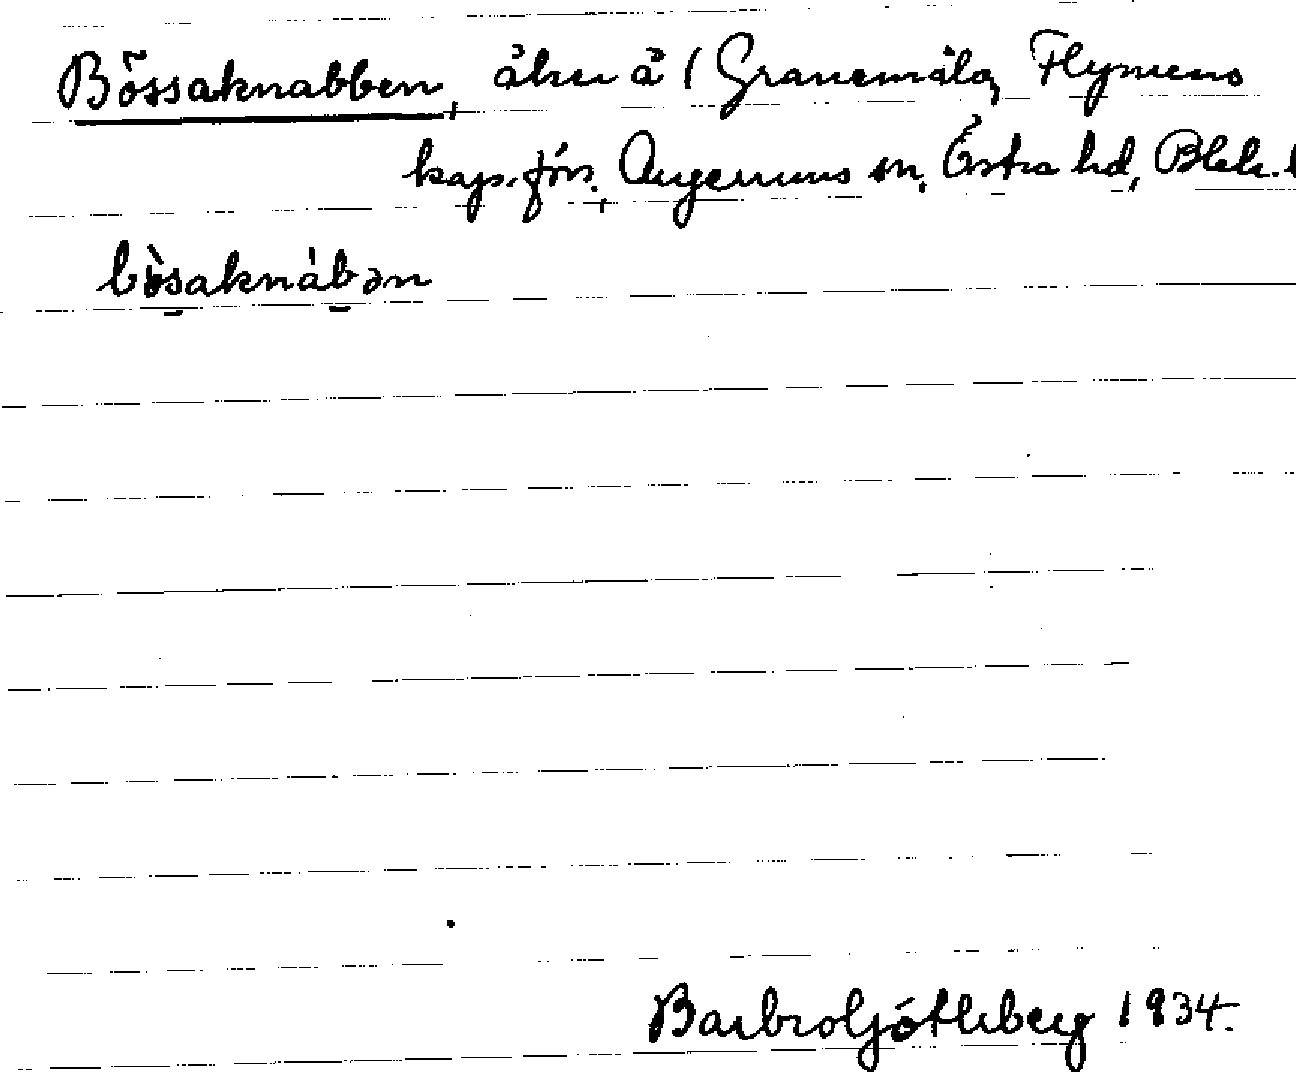 Bössaknabben, åker å 1 Granemåla, Flymens
kap. förs., Augerums sn, Östra hd, Blek. l
bòsaknábən
Barbro Götleberg 1934.